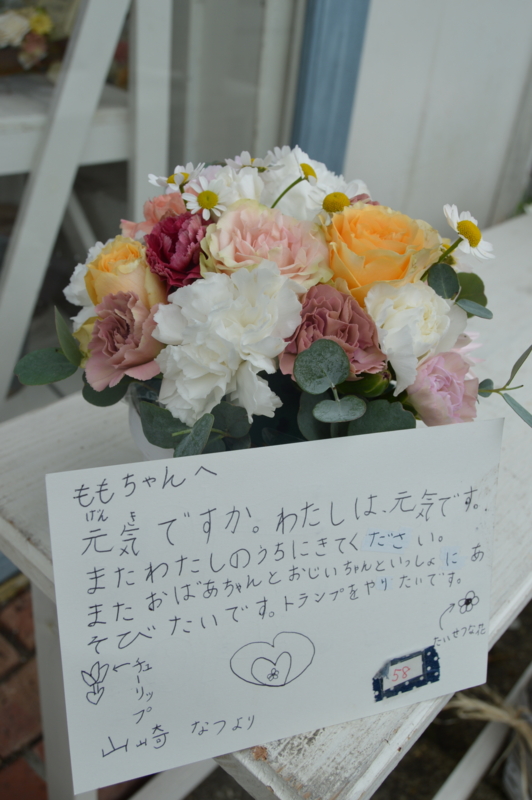 ももちゃんへ
げん き
元気ですか。わたしは、元気です。
またわたしのうちにきてください。
またおばあちゃんとおじいちゃんといっしょにあ
そびたいです。トランプをやりたいです。
チューリップ
たいせつな花
58
山崎 なつより